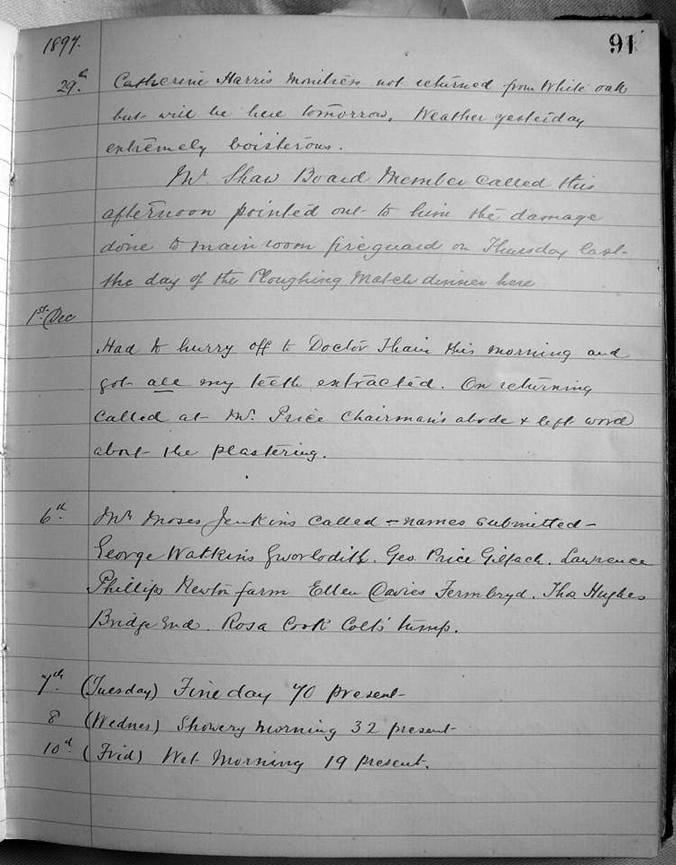 1897. 91
29th Catherine Harris Monitress not returned from White oak
but will be here tomorrow. Weather yesterday
extremely boisterous.
Mr Shaw Board Member called this
afternoon pointed out to him the damage
done to main room fireguard on Thursday last
the day of the Ploughing Match dinner here
1st Dec
Had to hurry off to Doctor Thain this morning and
got all my teeth extracted. On returning
called at Mr. Price Chairman's abode & left word
about the plastering.
6th Mr Moses Jenkins called - names submitted -
George Watkins Gworlodith. Geo. Price Gilfach. Lawrence
Phillips Newton farm Ellen Davies Fermbryd. Thos Hughes
Bridge End. Rosa Cook Colt's tump.
7th (Tuesday) Fine day 70 present
8 (Wednes) Showery Morning 32 present
10th (Frid) Wet Morning 19 present.